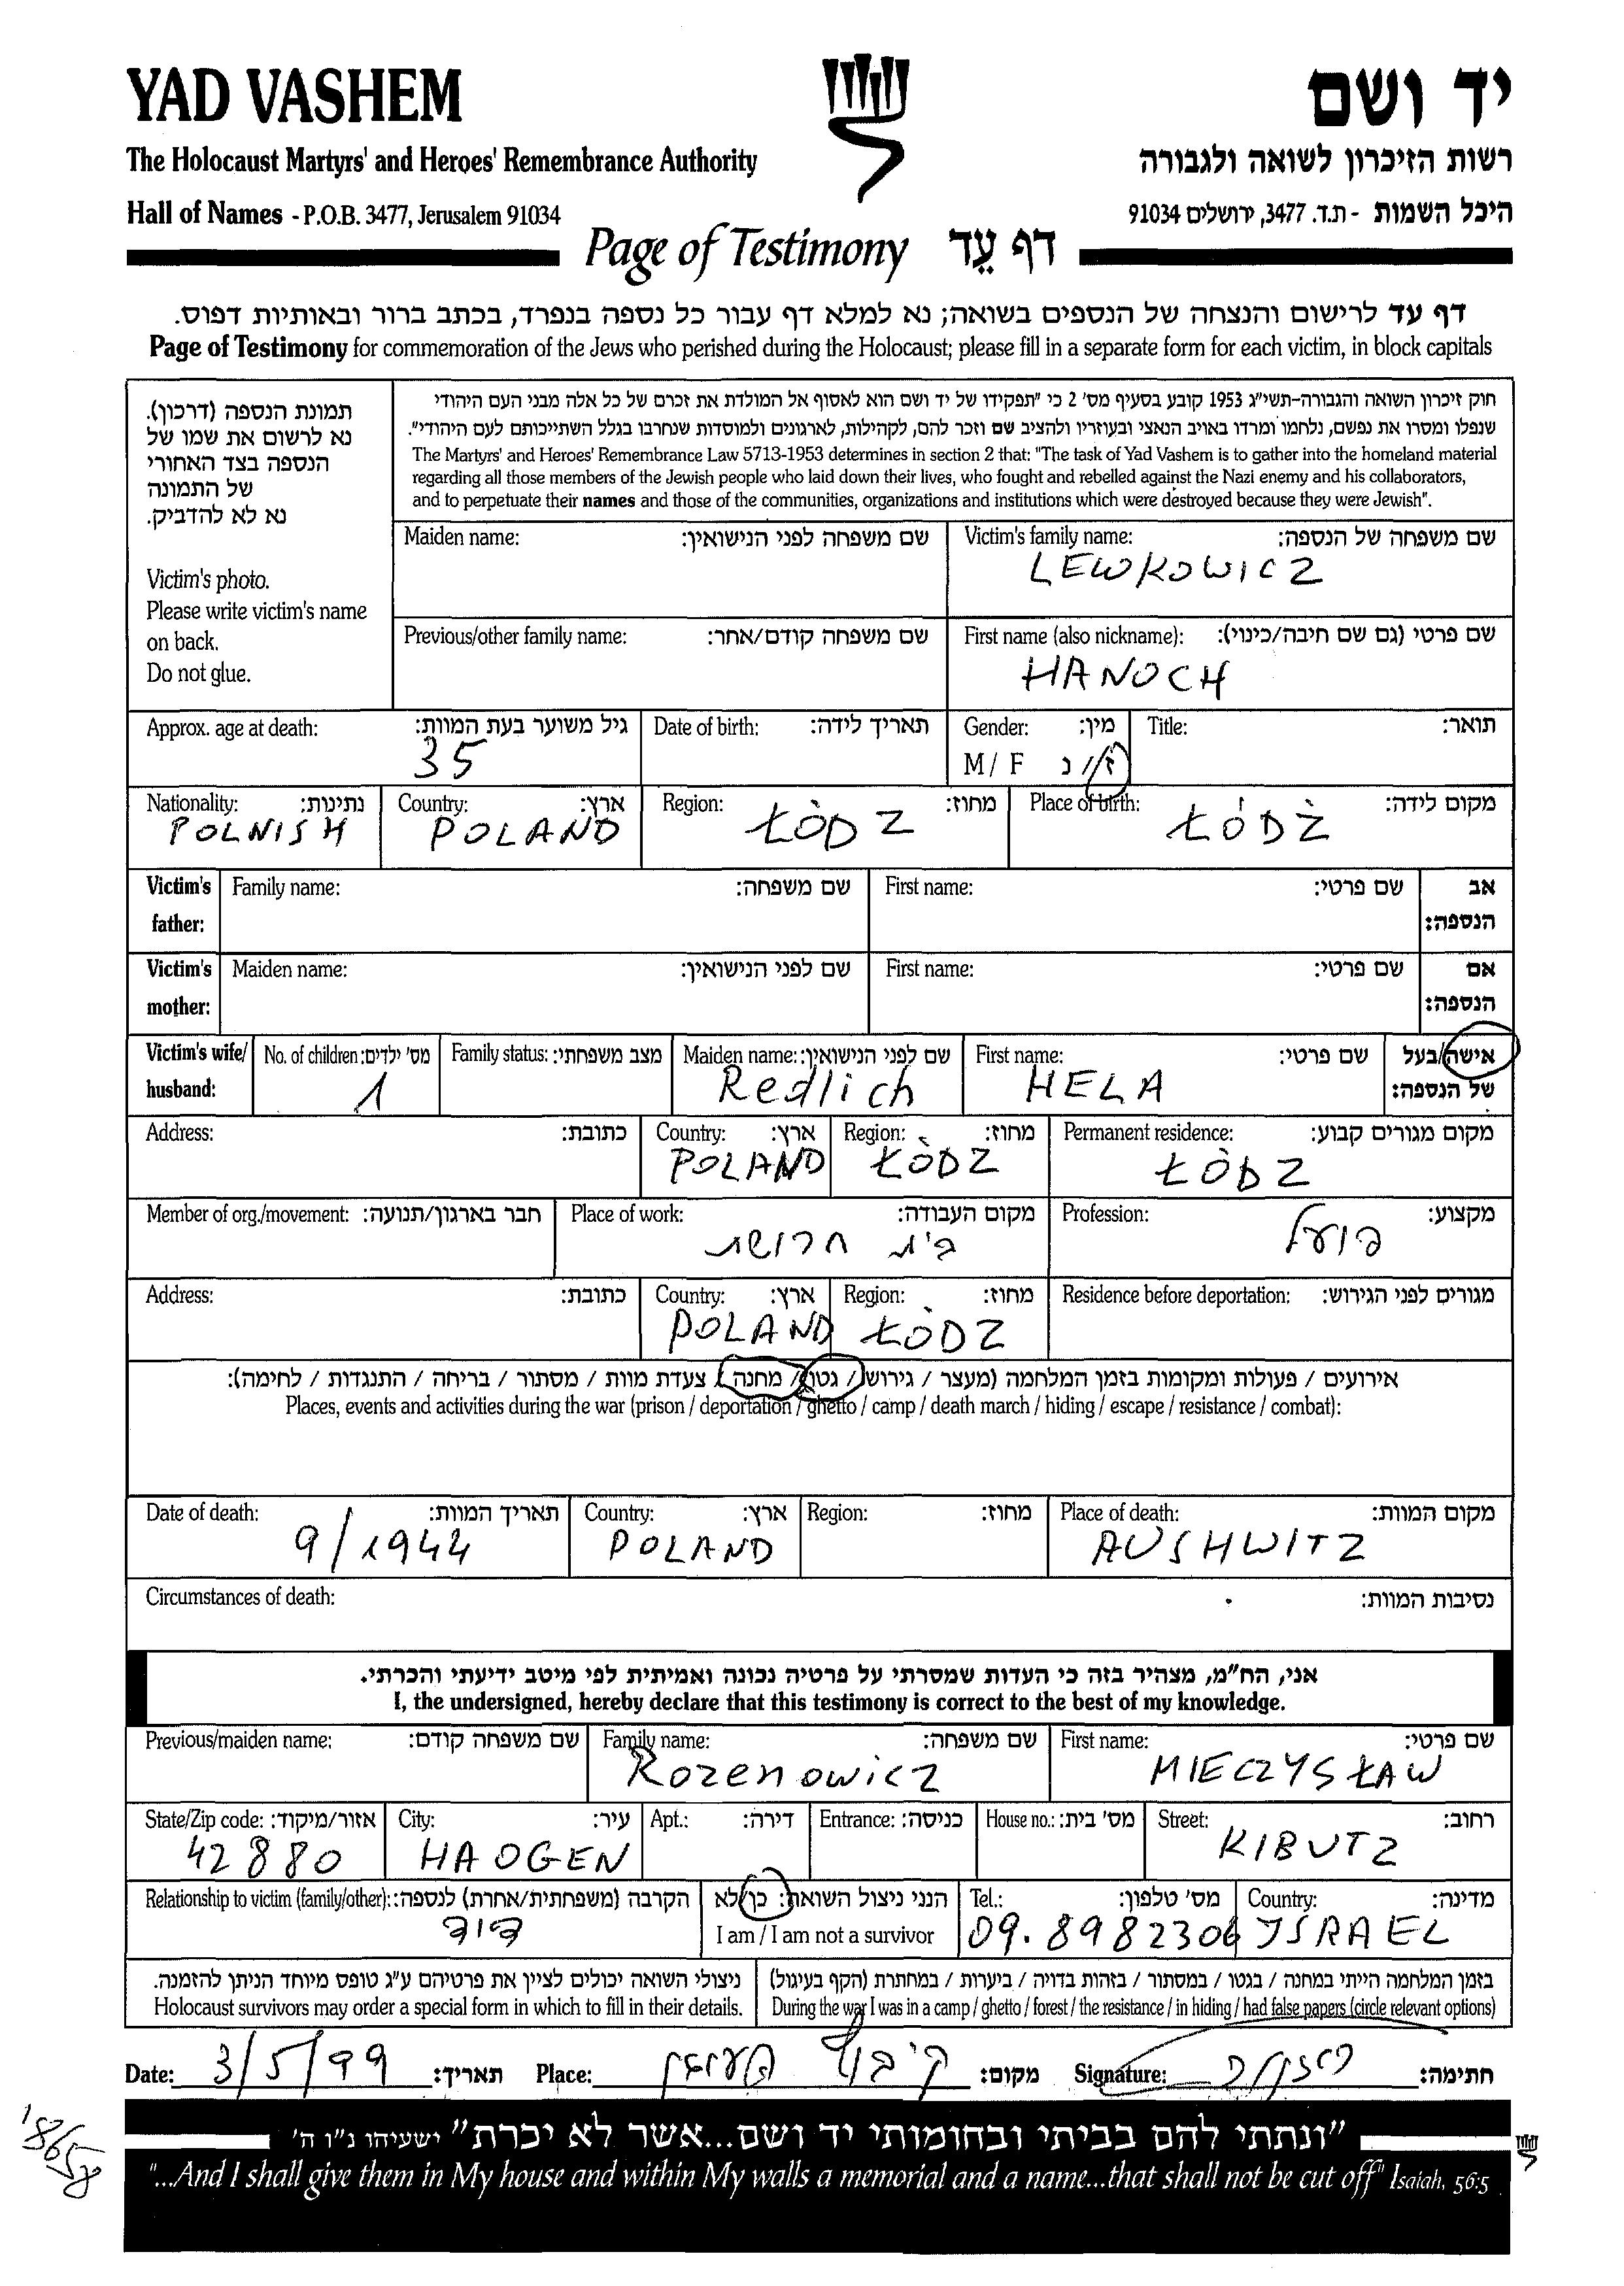 YAD VASHEM
יד ושם
The Holocaust Martyrs' and Heroes' Remembrance Authority
רשות הזיכרון לשואה ולגבורה
Hall of Names - P.O.B. 3477, Jerusalem 91034
היכל השמות - ת.ד. 3477, ירושלים 91034
Page of Testimony דף עֵד
דף עד לרישום והנצחה של הנספים בשואה; נא למלא דף עבור כל נספה בנפרד, בכתב ברור ובאותיות דפוס.
Page of Testimony for commemoration of the Jews who perished during the Holocaust; please fill in a separate form for each victim, in block capitals
תמונת הנספה (דרכון).
נא לרשום את שמו של
הנספה בצד האחורי
של התמונה
נא לא להדביק.
Victim's photo.
Please write victim's name
on back.
Do not glue.
חוק זיכרון השואה והגבורה-תשי"ג 1953 קובע בסעיף מס' 2 כי "תפקידו של יד ושם הוא לאסוף אל המולדת את זכרם של כל אלה מבני העם היהודי
שנפלו ומסרו את נפשם, נלחמו ומרדו באויב הנאצי ובעוזריו ולהציב שם וזכר להם, לקהילות, לארגונים ולמוסדות שנחרבו בגלל השתייכותם לעם היהודי".
The Martyrs' and Heroes' Remembrance Law 5713-1953 determines in section 2 that: "The task of Yad Vashem is to gather into the homeland material
regarding all those members of the Jewish people who laid down their lives, who fought and rebelled against the Nazi enemy and his collaborators,
and to perpetuate their names and those of the communities, organizations and institutions which were destroyed because they were Jewish".
Maiden name: שם משפחה לפני הנישואין:
Victim's family name: שם משפחה של הנספה:
LEWKOWICZ
Previous/other family name: שם משפחה קודם/אחר:
First name (also nickname): שם פרטי (גם שם חיבה/כינוי):
HANOCH
Approx. age at death: גיל משוער בעת המוות:
35
Date of birth: תאריך לידה:
Gender: מין:
M / F ז/נ
Title: תואר:
Nationality: נתינות:
POLNISH
Country: ארץ:
POLAND
Region: מחוז:
ŁÒDZ
Place of birth: מקום לידה:
ŁÓDŻ
Victim's father: Family name: שם משפחה: First name: שם פרטי: אב הנספה:
Victim's mother: Maiden name: שם לפני הנישואין: First name: שם פרטי: אם הנספה:
Victim's wife/husband: No. of children: מס' ילדים: Family status: מצב משפחתי: Maiden name: שם לפני הנישואין: First name: שם פרטי: אישה/בעל של הנספה:
1 Redlich HELA
Address: כתובת: Country: ארץ: Region: מחוז: Permanent residence: מקום מגורים קבוע:
POLAND ŁÒDZ ŁÒDZ
Member of org./movement: חבר בארגון/תנועה: Place of work: מקום העבודה: Profession: מקצוע:
בית חרושת פועל
Address: כתובת: Country: ארץ: Region: מחוז: Residence before deportation: מגורים לפני הגירוש:
POLAND ŁÒDZ
אירועים / פעולות ומקומות בזמן המלחמה (מעצר / גירוש / גטו / מחנה / צעדת מוות / מסתור / בריחה / התנגדות / לחימה):
Places, events and activities during the war (prison / deportation / ghetto / camp / death march / hiding / escape / resistance / combat):
Date of death: תאריך המוות: Country: ארץ: Region: מחוז: Place of death: מקום המוות:
9/1944 POLAND AUSHWITZ
Circumstances of death: נסיבות המוות:
אני, הח"מ, מצהיר בזה כי העדות שמסרתי על פרטיה נכונה ואמיתית לפי מיטב ידיעתי והכרתי.
I, the undersigned, hereby declare that this testimony is correct to the best of my knowledge.
Previous/maiden name: שם משפחה קודם: Family name: שם משפחה: First name: שם פרטי:
Rozenowicz MIECZYSŁAW
State/Zip code: אזור/מיקוד: City: עיר: Apt.: דירה: Entrance: כניסה: House no.: מס' בית: Street: רחוב:
42880 HAOGEN KIBUTZ
Relationship to victim (family/other): הקרבה (משפחתית/אחרת) לנספה: הנני ניצול השואה: כן/לא Tel.: מס' טלפון: Country: מדינה:
דוד I am / I am not a survivor 09.8982306 ISRAEL
ניצולי השואה יכולים לציין את פרטיהם ע"ג טופס מיוחד הניתן להזמנה.
Holocaust survivors may order a special form in which to fill in their details.
בזמן המלחמה הייתי במחנה / בגטו / במסתור / בזהות בדויה / ביערות / במחתרת (הקף בעיגול)
During the war I was in a camp / ghetto / forest / the resistance / in hiding / had false papers (circle relevant options)
Date: 3/5/99 תאריך: Place: קיבוץ העוגן מקום: Signature: חתימה:
"ונתתי להם בביתי ובחומותי יד ושם...אשר לא יכרת" ישעיהו נ"ו ה'
"...And I shall give them in My house and within My walls a memorial and a name...that shall not be cut off" Isaiah, 56:5